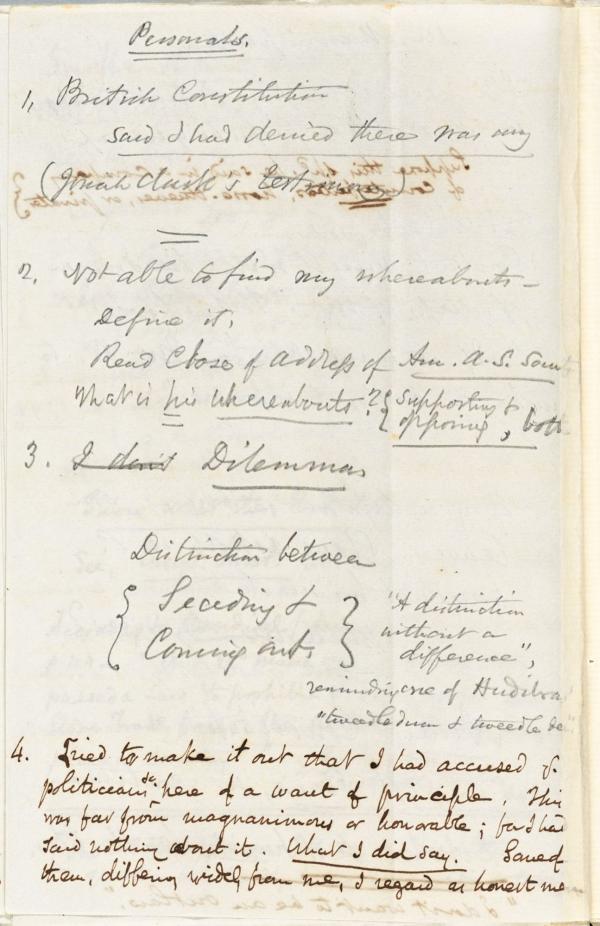 Personals.
1, British Constitution
said I had denied there was any
(Jonah Clark's testimony)
2. Not able to find my whereabouts –
Define it.
Read Close of address of Am. A. S. Soci
What is his whereabouts? { supporting &
opposing, both
3. I don't Dilemmas
Distinction between
{ Seceding & } "A distinction
Coming out. without a
difference",
reminding one of Hudibras
"tweedle dum & tweedle dee"
4. Tried to make it out that I had accused
politicians &c here of a want of principle. This
was far from magnanimous or honorable; for I had
said nothing about it. What I did say. Some of
them, differing widely from me, I regard as honest me